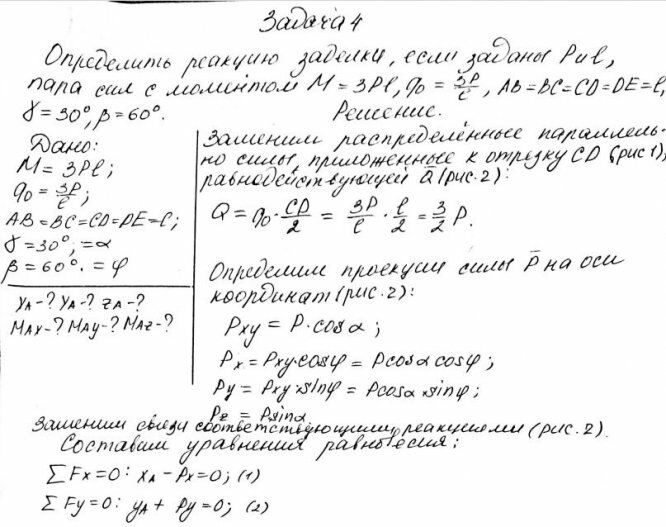 Задача 4
Определить реакцию заделки, если заданы P и l,
пара сил с моментом M = 3Pl, q₀ = 3P/l, AB = BC = CD = DE = l,
γ = 30°, β = 60°.
Решение.
Дано:
M = 3Pl;
q₀ = 3P/l;
AB = BC = CD = DE = l;
γ = 30°, = α
β = 60°. = φ
YA - ? YA - ? ZA - ?
MAX - ? MAY - ? MAZ - ?
Заменим распределённые параллель-
но силы, приложенные к отрезку CD (рис 1),
равнодействующей Q̄ (рис. 2):
Q = q₀ · CD/2 = 3P/l · l/2 = 3/2 P.
Определим проекции силы P̄ на оси
координат (рис. 2):
Pxy = P · cosα;
Px = Pxy · cosφ = Pcosα cosφ;
Py = Pxy · sinφ = Pcosα · sinφ;
Pz = Psinα
Заменим связи соответствующими реакциями (рис. 2).
Составим уравнения равновесия:
∑Fx = 0: XA - Px = 0; (1)
∑Fy = 0: YA + Py = 0; (2)